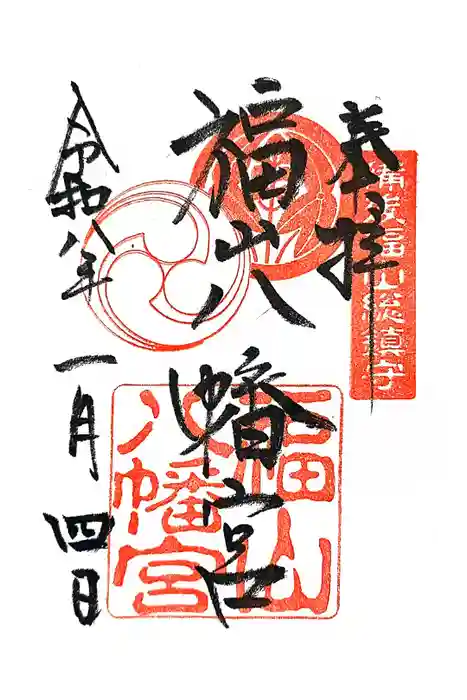 備後福山総鎮守
奉拝
福山八幡宮
福山
八幡宮
令和八年一月四日